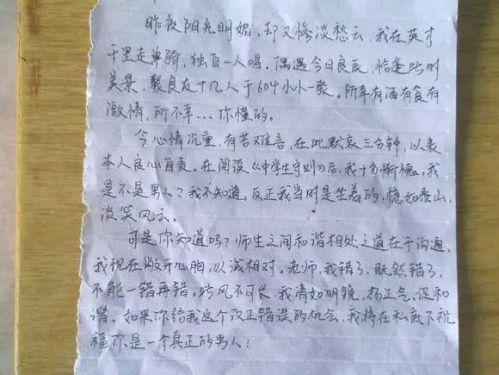 昨夜阳光明媚,却又惨淡愁云,我在英才
千里走单骑,独自一人喝,偶遇今日良辰,恰逢此时
美景,聚良友十几人于604小小一聚。所幸有酒有食有
激情,所不幸...你懂的。
今心情沉重,有苦难言,在此默哀三分钟,以表
本人良心自责。在阅读《中学生守则》后,我十分惭愧,我
是不是男人?我不知道,反正我当时是坐着的,稳如泰山,
淡笑风云。
可是你知道吗?师生之间和谐相处之道在于沟通,
我现在敞开心胸,以诚相对。老师,我错了,既然错了,
不能一错再错,歪风不可长,我清如明镜,扬正气,促和
谐。如果你给我这个改正错误的机会,我将在私底下祝
福你是一个真正的男人!